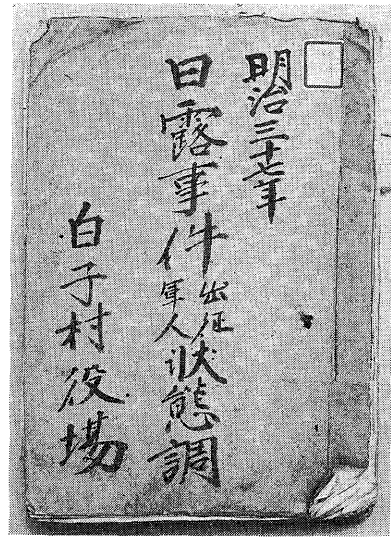 明治三十七年
日露事件出征軍人状態調
白子村役場